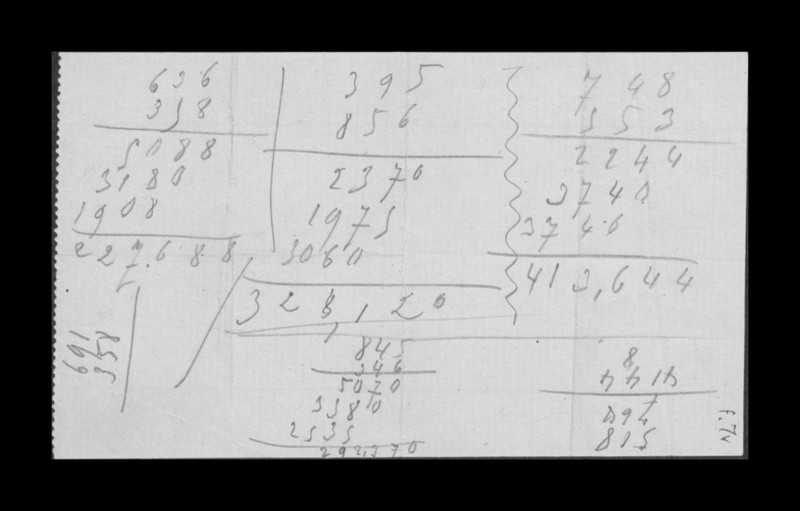 636
358
5088
3180
1908
227.688
395
856
2370
1975
3060
328,120
748
553
2244
3740
3740
413,644
691
358
845
346
5070
3380
2535
292,370
f. 7v